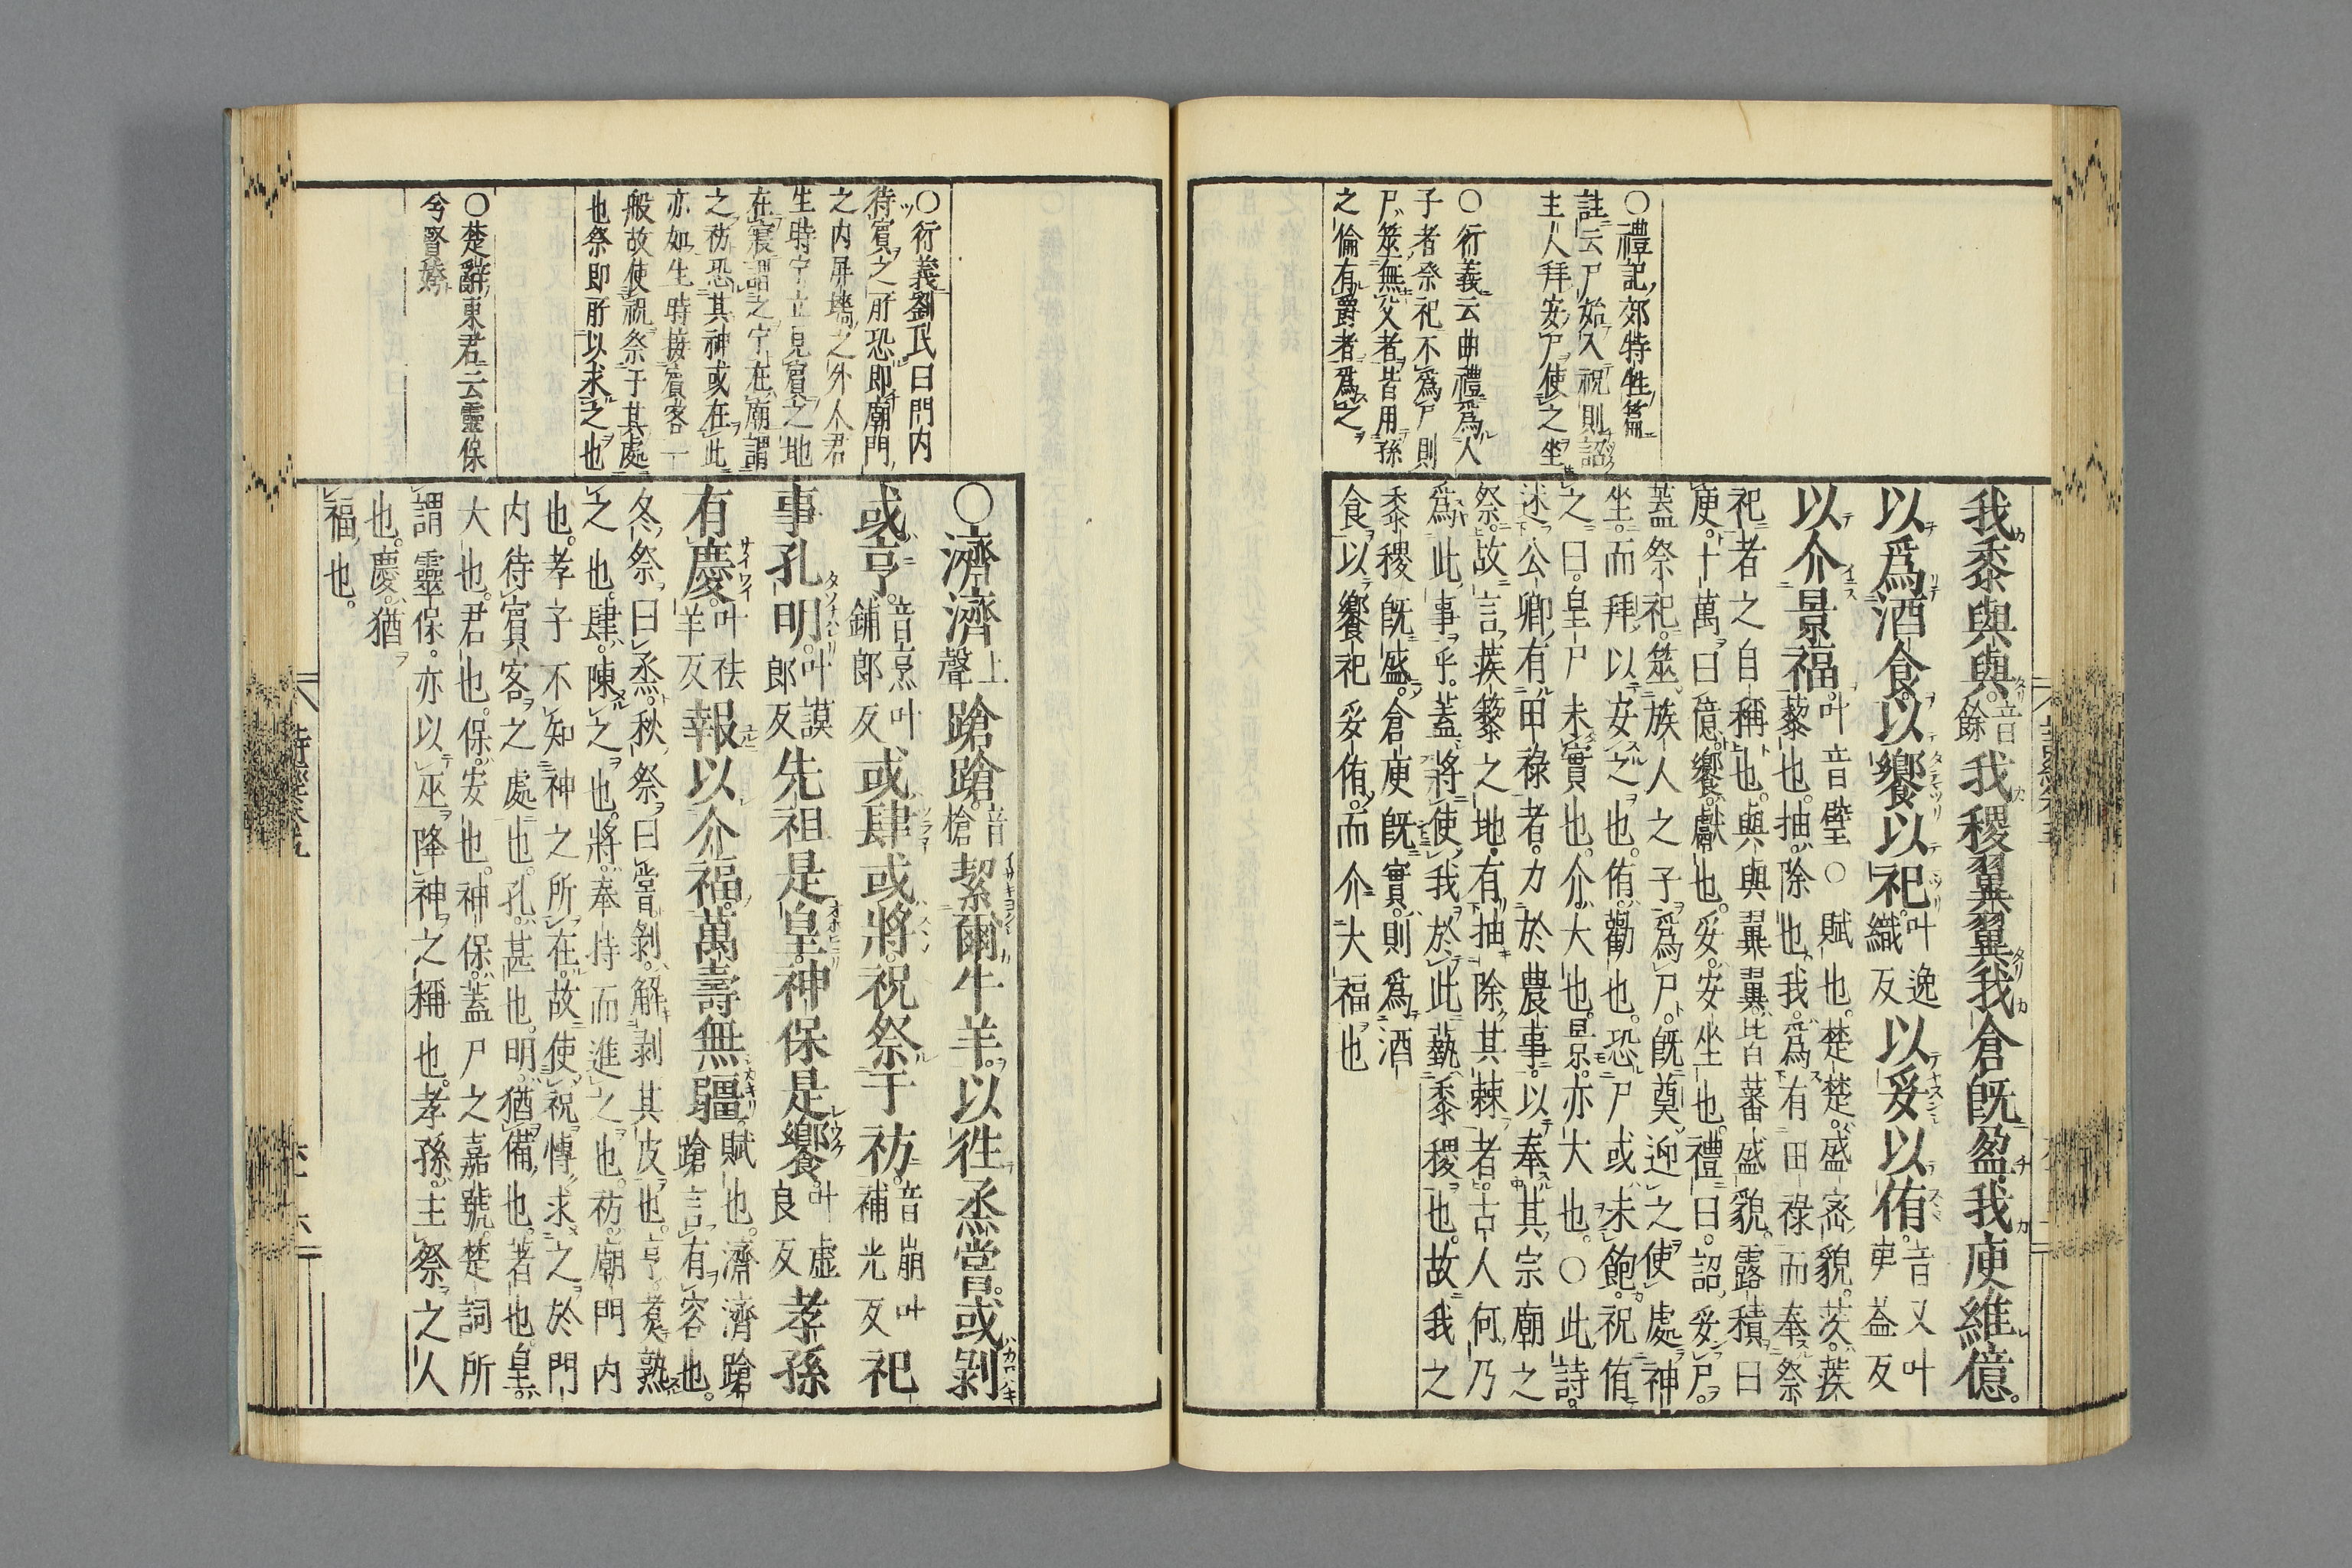 ○禮記郊特牲篇
註云尸始入祝則詔
主人拜安尸使之坐
○衍義云曲禮爲人
子者祭祀不爲尸則
尸筮無父者皆用孫
之倫有爵者爲之
我黍與與音餘我稷翼翼我倉既盈我庾維億
以爲酒食以饗以祀叶逸織反以妥以侑音又叶夷益反
以介景福叶音璧○賦也楚楚盛密貌茨蒺
藜也抽除也我爲有田祿而奉祭
祀者之自稱也與與翼翼皆蕃盛貌露積曰
庾十萬曰億饗獻也妥安坐也禮曰詔妥尸
蓋祭祀筮族人之子爲尸既奠迎之使處神
坐而拜以安之也侑勸也恐尸或未飽祝侑
之曰皇尸未實也介大也景亦大也○此詩
述公卿有田祿者力於農事以奉其宗廟之
祭故言蒺藜之地有抽除其棘者古人何乃
爲此事乎蓋將使我於此蓺黍稷也故我之
黍稷既盛倉庾既實則爲酒
食以饗祀妥侑而介大福也
○衍義劉氏曰門内
待賓之所恐即廟門
之内屏墻之外人君
生時宁立見賓之地
在寢謂之宁在廟謂
之祊恐其神或在此
亦如生時接賓客一
般故使祝祭于其處
也祭即所以求之也
○楚辭東君云靈保
兮賢姱
○濟濟上聲蹌蹌音槍絜爾牛羊以往烝嘗或剝
或亨音烹叶鋪郎反或肆或將祝祭于祊音崩叶補光反祀
事孔明叶謨郎反先祖是皇神保是饗叶虛良反孝孫
有慶叶祛羊反報以介福萬壽無疆賦也濟濟蹌蹌言有容也
冬祭曰烝秋祭曰嘗剝解剥其皮也亨煑熟
之也肆陳之也將奉持而進之也祊廟門内
也孝子不知神之所在故使祝博求之於門
内待賓客之處也孔甚也明猶備也著也皇
大也君也保安也神保蓋尸之嘉號楚詞所
謂靈保亦以巫降神之稱也孝孫主祭之人
也慶猶
福也